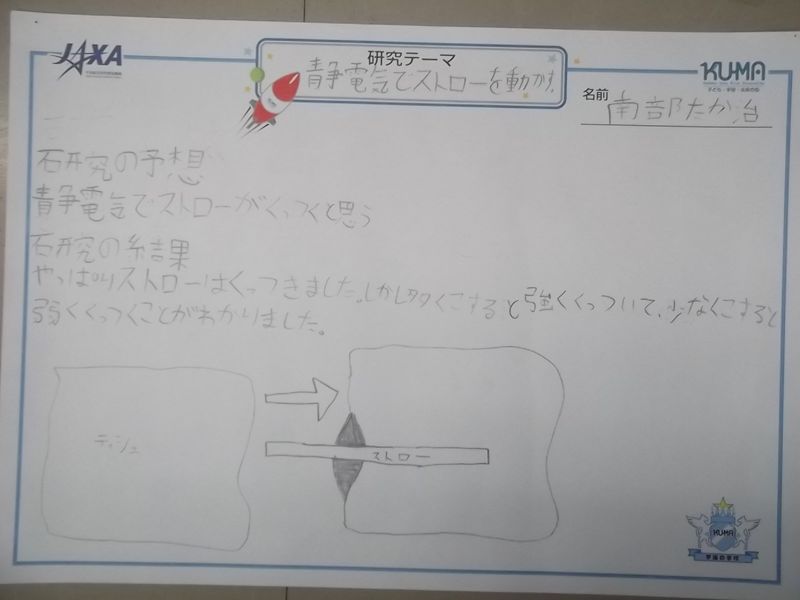 JAXA
研究テーマ
静電気でストローを動かす。
KUMA
名前
南部たか治
研究の予想
静電気でストローがくっつくと思う
研究の結果
やっぱりストローはくっつきました。しかし多くこすると強くくっついて、少なくこすると
弱くくっつくことがわかりました。
ティシュ
ストロー
KUMA
宇宙の学校